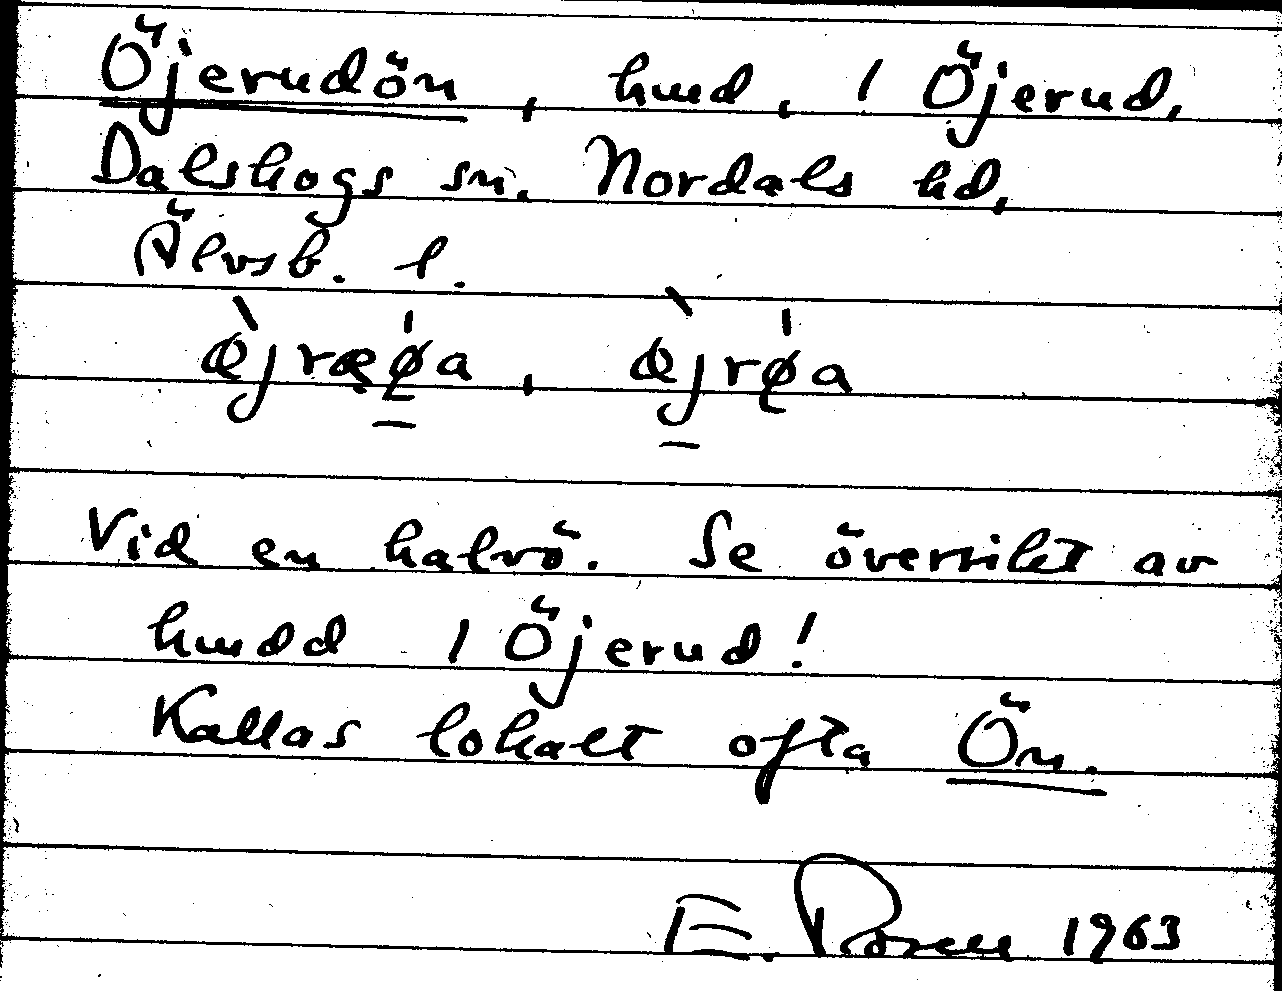 Öjerudön, hmd, i Öjerud,
Dalskogs sn. Nordals hd,
Älvsb. l.
æ̀jræǿ̨a, æ̀jrǿ̨a
Vid en halvö. Se översikt av
hmdd i Öjerud!
Kallas lokalt ofta Ön.
E. Rosell 1963